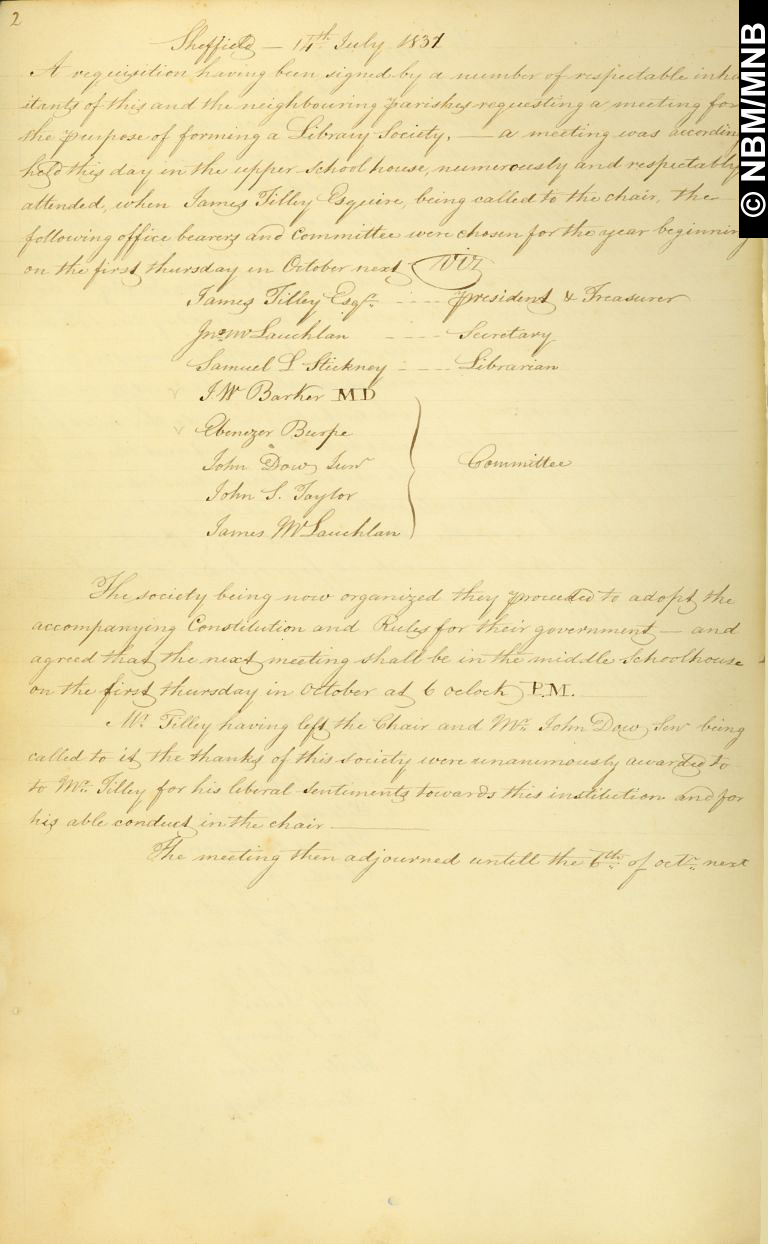 2
Sheffield — 14th July 1831
A requisition having been signed by a number of respectable inha
itants of this and the neighbouring parishes requesting a meeting for
the purpose of forming a Library Society, — a meeting was according
held this day in the upper school house, numerously and respectably
attended, when James Tilley Esquire, being called to the chair, the
following office bearers and Committee were chosen for the year beginning
on the first thursday in October next Viz
James Tilley Esqr. - - - - President & Treasurer
Jno McLauchlan - - - - Secretary
Samuel L Stickney - - - - Librarian
I W Barker MD
Ebenezer Burpe
John Dow Junr
John S. Taylor
James McLauchlan
Committee
The society being now organized they proceeded to adopt the
accompanying Constitution and Rules for their government — and
agreed that the next meeting shall be in the middle Schoolhouse
on the first thursday in October at 6 oclock P.M.
Mr. Tilley having left the Chair and Mr. John Dow Senr being
called to it the thanks of this society were unanimously awarded to
to Mr. Tilley for his liberal sentiments towards this institution and for
his able conduct in the chair —
The meeting then adjourned untill the 6th of octr. next
© NBM/MNB